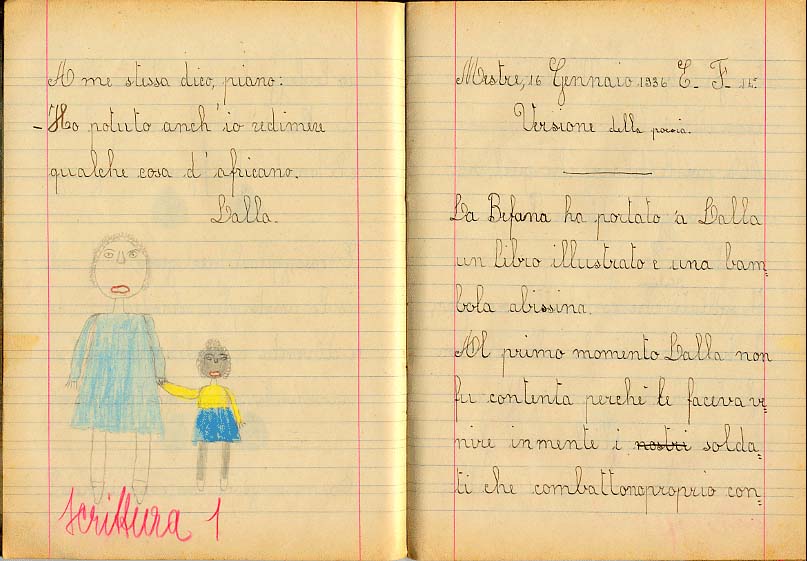 A me stessa dico, piano:
- Ho potuto anch'io redimere
qualche cosa d'africano.
Lalla.
scrittura 1
Mestre, 16 Gennaio 1936 E. F. 14°
Versione della poesia.
La Befana ha portato a Lalla
un libro illustrato e una bam=
bola abissina.
Al primo momento Lalla non
fu contenta perché le faceva ve=
nire inmente i nostri solda=
ti che combattonoproprio con=